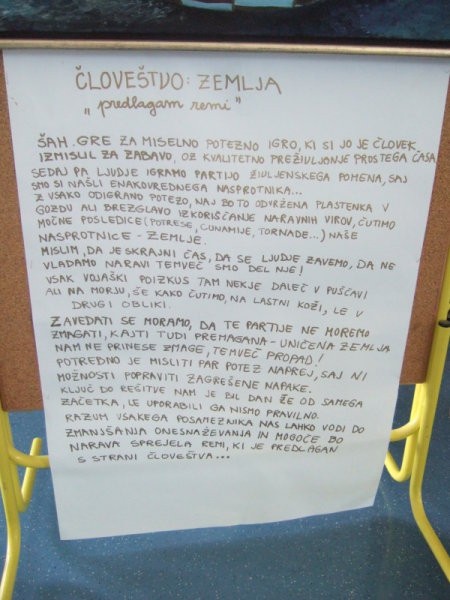 ČLOVEŠTVO: ZEMLJA
„predlagam remi"
ŠAH. GRE ZA MISELNO POTEZNO IGRO, KI SI JO JE ČLOVEK
IZMISLIL ZA ZABAVO, OZ KVALITETNO PREŽIVLJANJE PROSTEGA ČASA
SEDAJ PA LJUDJE IGRAMO PARTIJO ŽIVLJENSKEGA POMENA, SAJ
SMO SI NAŠLI ENAKOVREDNEGA NASPROTNIKA...
Z VSAKO ODIGRANO POTEZO, NAJ BO TO ODVRŽENA PLASTENKA V
GOZDU ALI BREZGLAVO IZKORIŠČANJE NARAVNIH VIROV, ČUTIMO
MOČNE POSLEDICE (POTRESE, CUNAMIJE, TORNADE...) NAŠE
NASPROTNICE - ZEMLJE.
MISLIM, DA JE SKRAJNI ČAS, DA SE LJUDJE ZAVEMO, DA NE
VLADAMO NARAVI TEMVEČ SMO DEL NJE!
VSAK VOJAŠKI POIZKUS TAM NEKJE DALEČ V PUŠČAVI
ALI NA MORJU, ŠE KAKO ČUTIMO, NA LASTNI KOŽI, LE V
DRUGI OBLIKI.
ZAVEDATI SE MORAMO, DA TE PARTIJE NE MOREMO
ZMAGATI, KAJTI TUDI PREMAGANA - UNIČENA ZEMLJA
NAM NE PRINESE ZMAGE, TEMVEČ PROPAD!
POTREDNO JE MISLITI PAR POTEZ NAPREJ, SAJ NI
MOŽNOSTI POPRAVITI ZAGREŠENE NAPAKE.
KLJUČ DO REŠITVE NAM JE BIL DAN ŽE OD SAMEGA
ZAČETKA, LE UPORABILI GA NISMO PRAVILNO.
RAZUM VSAKEGA POSAMEZNIKA NAS LAHKO VODI DO
ZMANJŠANJA ONESNAŽEVANJA IN MOGOČE BO
NARAVA SPREJELA REMI, KI JE PREDLAGAN
S STRANI ČLOVEŠTVA...